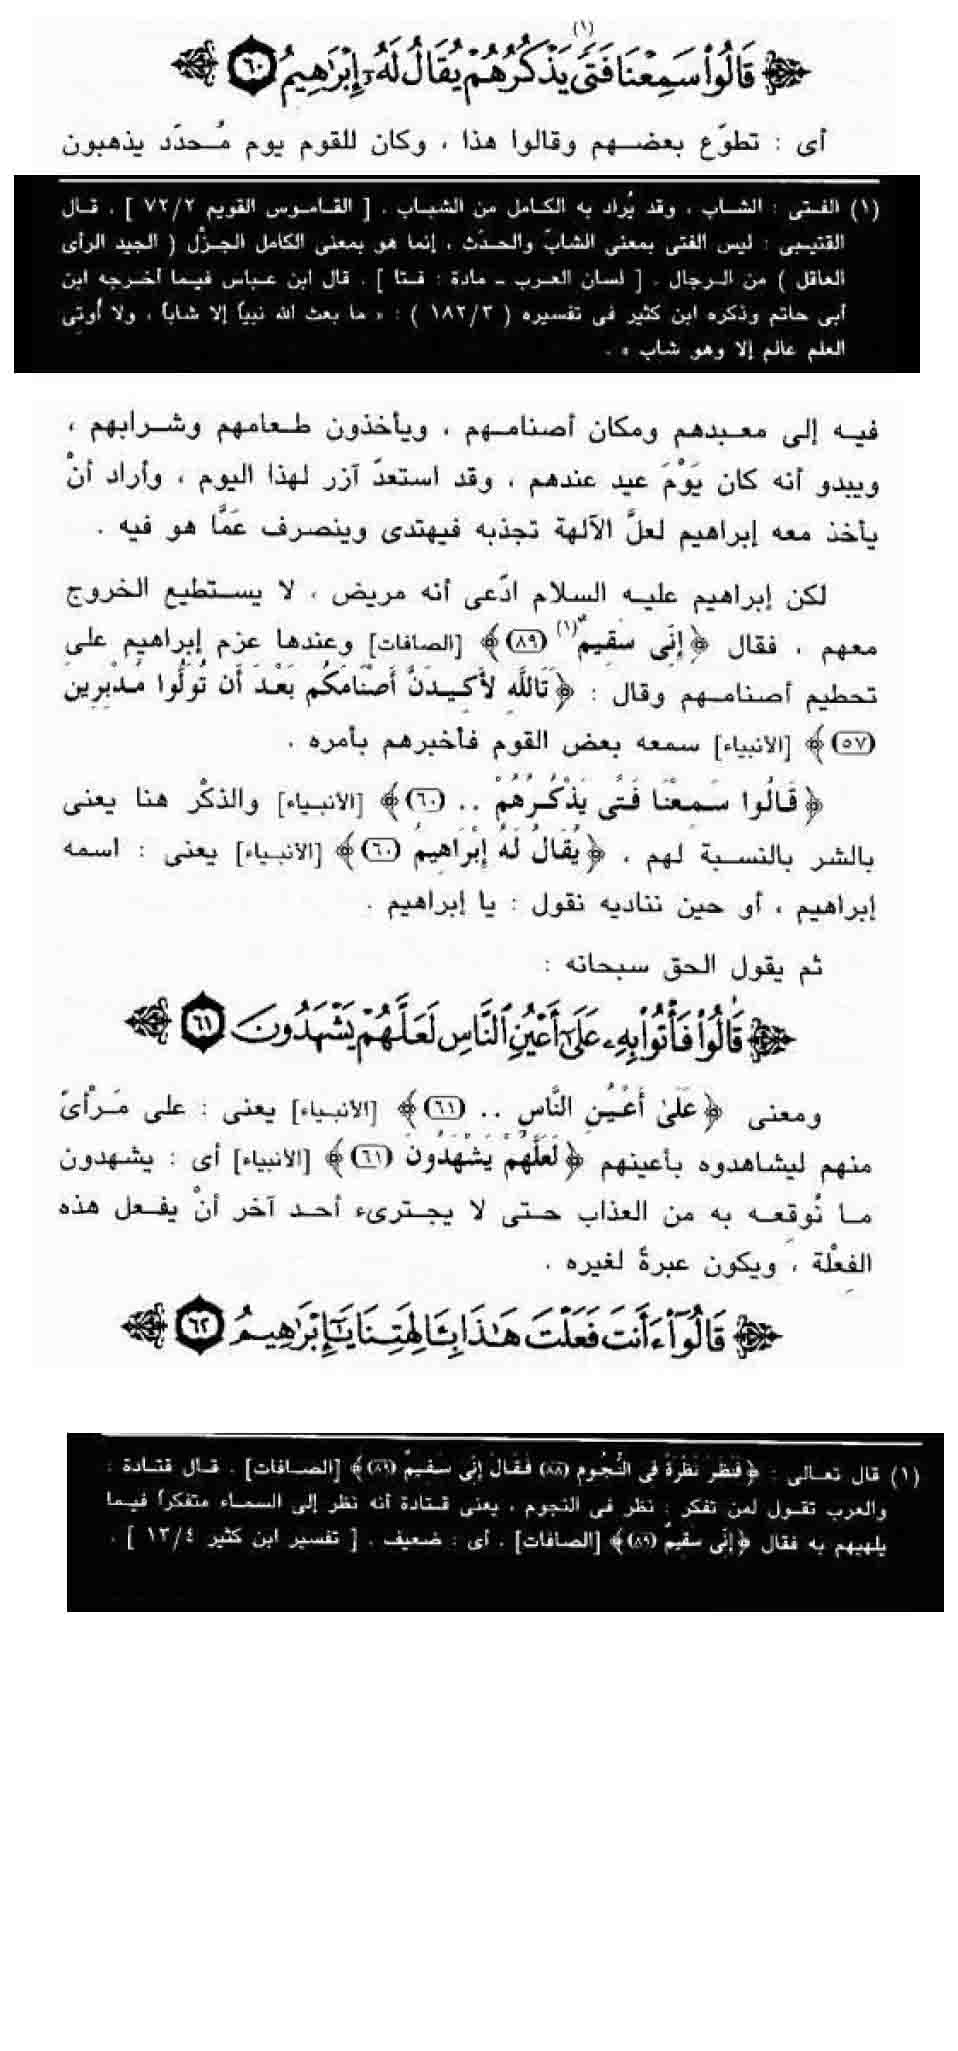 (١)
قَالُوا۟ سَمِعْنَا فَتًى يَذْكُرُهُمْ يُقَالُ لَهُۥٓ إِبْرَٰهِيمُ ٦٠
أى : تطوّع بعضهم وقالوا هذا ، وكان للقوم يوم مُحدَّد يذهبون
(١) الفتى : الشاب ، وقد يُراد به الكامل من الشباب . [ القاموس القويم ٧٢/٢ ] . قال
القتيبى : ليس الفتى بمعنى الشابّ والحدَث ، إنما هو بمعنى الكامل الجزْل ( الجيد الرأى
العاقل ) من الرجال . [ لسان العرب - مادة : فتا ] . قال ابن عباس فيما أخرجه ابن
أبى حاتم وذكره ابن كثير فى تفسيره ( ١٨٢/٣ ) : « ما بعث الله نبياً إلا شاباً ، ولا أُوتِى
العلم عالم إلا وهو شاب » .
فيه إلى معبدهم ومكان أصنامهم ، ويأخذون طعامهم وشرابهم ،
ويبدو أنه كان يَوْمَ عيد عندهم ، وقد استعدّ آزر لهذا اليوم ، وأراد أنْ
يأخذ معه إبراهيم لعلَّ الآلهة تجذبه فيهتدى وينصرف عَمَّا هو فيه .
لكن إبراهيم عليه السلام ادَّعى أنه مريض ، لا يستطيع الخروج
معهم ، فقال ﴿ إِنِّى سَقِيمٌ (١) (٨٩) ﴾ [الصافات] وعندها عزم إبراهيم على
تحطيم أصنامهم وقال : ﴿ تَاللَّهِ لَأَكِيدَنَّ أَصْنَامَكُم بَعْدَ أَن تُوَلُّوا مُدْبِرِينَ
(٥٧) ﴾ [الأنبياء] سمعه بعض القوم فأخبرهم بأمره .
﴿ قَالُوا سَمِعْنَا فَتًى يَذْكُرُهُمْ .. (٦٠) ﴾ [الأنبياء] والذكْر هنا يعنى
بالشر بالنسبة لهم ، ﴿ يُقَالُ لَهُ إِبْرَاهِيمُ (٦٠) ﴾ [الأنبياء] يعنى : اسمه
إبراهيم ، أو حين نناديه نقول : يا إبراهيم .
ثم يقول الحق سبحانه :
قَالُوا۟ فَأْتُوا۟ بِهِۦ عَلَىٰٓ أَعْيُنِ ٱلنَّاسِ لَعَلَّهُمْ يَشْهَدُونَ ٦١
ومعنى ﴿ عَلَىٰ أَعْيُنِ النَّاسِ .. (٦١) ﴾ [الأنبياء] يعنى : على مَرْأىً
منهم ليشاهدوه بأعينهم ﴿ لَعَلَّهُمْ يَشْهَدُونَ (٦١) ﴾ [الأنبياء] أى : يشهدون
ما نُوقعه به من العذاب حتى لا يجترىء أحد آخر أنْ يفعل هذه
الفِعْلة ، ويكون عبرةً لغيره .
قَالُوٓا۟ ءَأَنتَ فَعَلْتَ هَٰذَا بِـَٔالِهَتِنَا يَٰٓإِبْرَٰهِيمُ ٦٢
(١) قال تعالى : ﴿ فَنَظَرَ نَظْرَةً فِى النُّجُومِ (٨٨) فَقَالَ إِنِّى سَقِيمٌ (٨٩) ﴾ [الصافات] . قال قتادة :
والعرب تقول لمن تفكر : نظر فى النجوم ، يعنى قتادة أنه نظر إلى السماء متفكراً فيما
يلهيهم به فقال ﴿ إِنِّى سَقِيمٌ (٨٩) ﴾ [الصافات] . أى : ضعيف . [ تفسير ابن كثير ١٣/٤ ] .